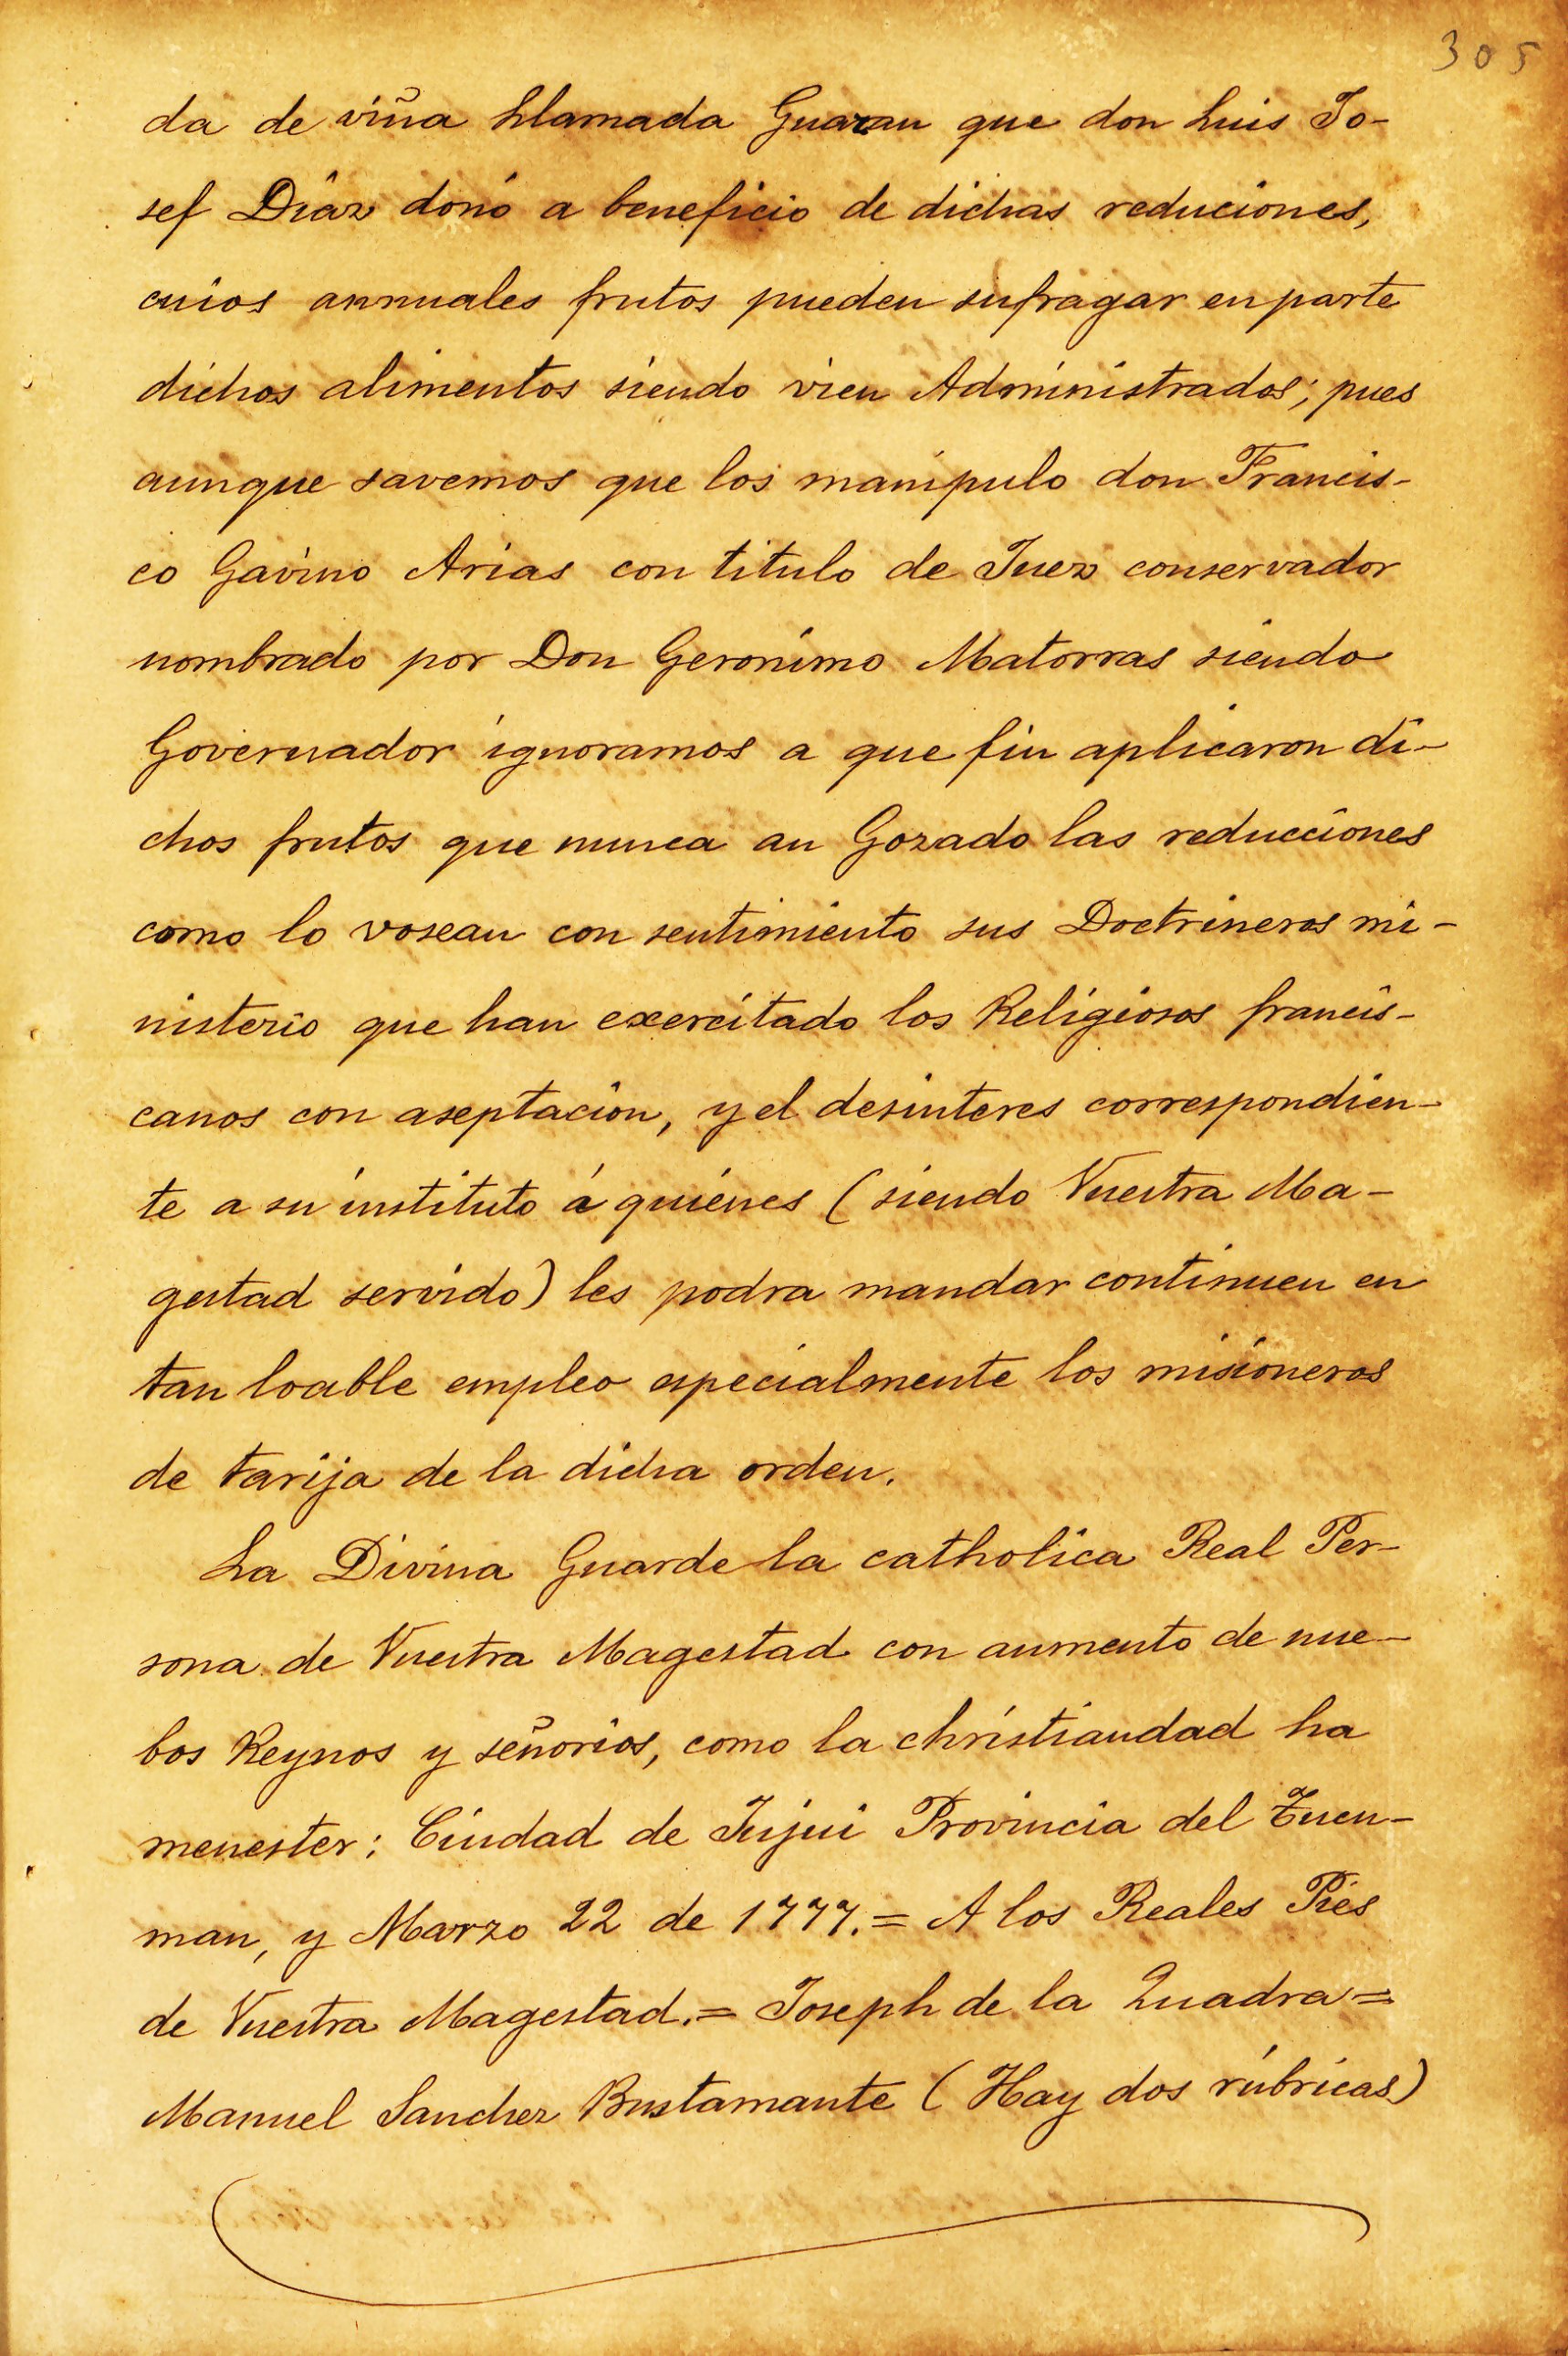 305
da de viña Llamada Guazan que don Luis Jo-
sef Diaz donó a beneficio de dichas reduciones,
cuios annuales frutos pueden sufragar en parte
dichos alimentos siendo vien Administrados; pues
aunque savemos que los manipulo don Francis-
co Gavino Arias con titulo de Juez conservador
nombrado por Don Geronimo Matorras siendo
Governador ignoramos a que fin aplicaron di-
chos frutos que nunca an Gozado las reducciones
como lo vosean con sentimiento sus Doctrineros mi-
nisterio que han exercitado los Religiosos francis-
canos con aseptacion, y el desinteres correspondien-
te a su instituto á quienes (siendo Vuestra Ma-
gestad servido) les podra mandar continuen en
tan loable empleo especialmente los misioneros
de tarija de la dicha orden.
La Divina Guarde la catholica Real Per-
sona de Vuestra Magestad con aumento de nue-
bos Reynos y señorios, como la christiandad ha
menester: Ciudad de Jujui Provincia del Tucu-
man, y Marzo 22 de 1777.= A los Reales Pies
de Vuestra Magestad.= Joseph de la Quadra=
Manuel Sanchez Bustamante (Hay dos rúbricas)